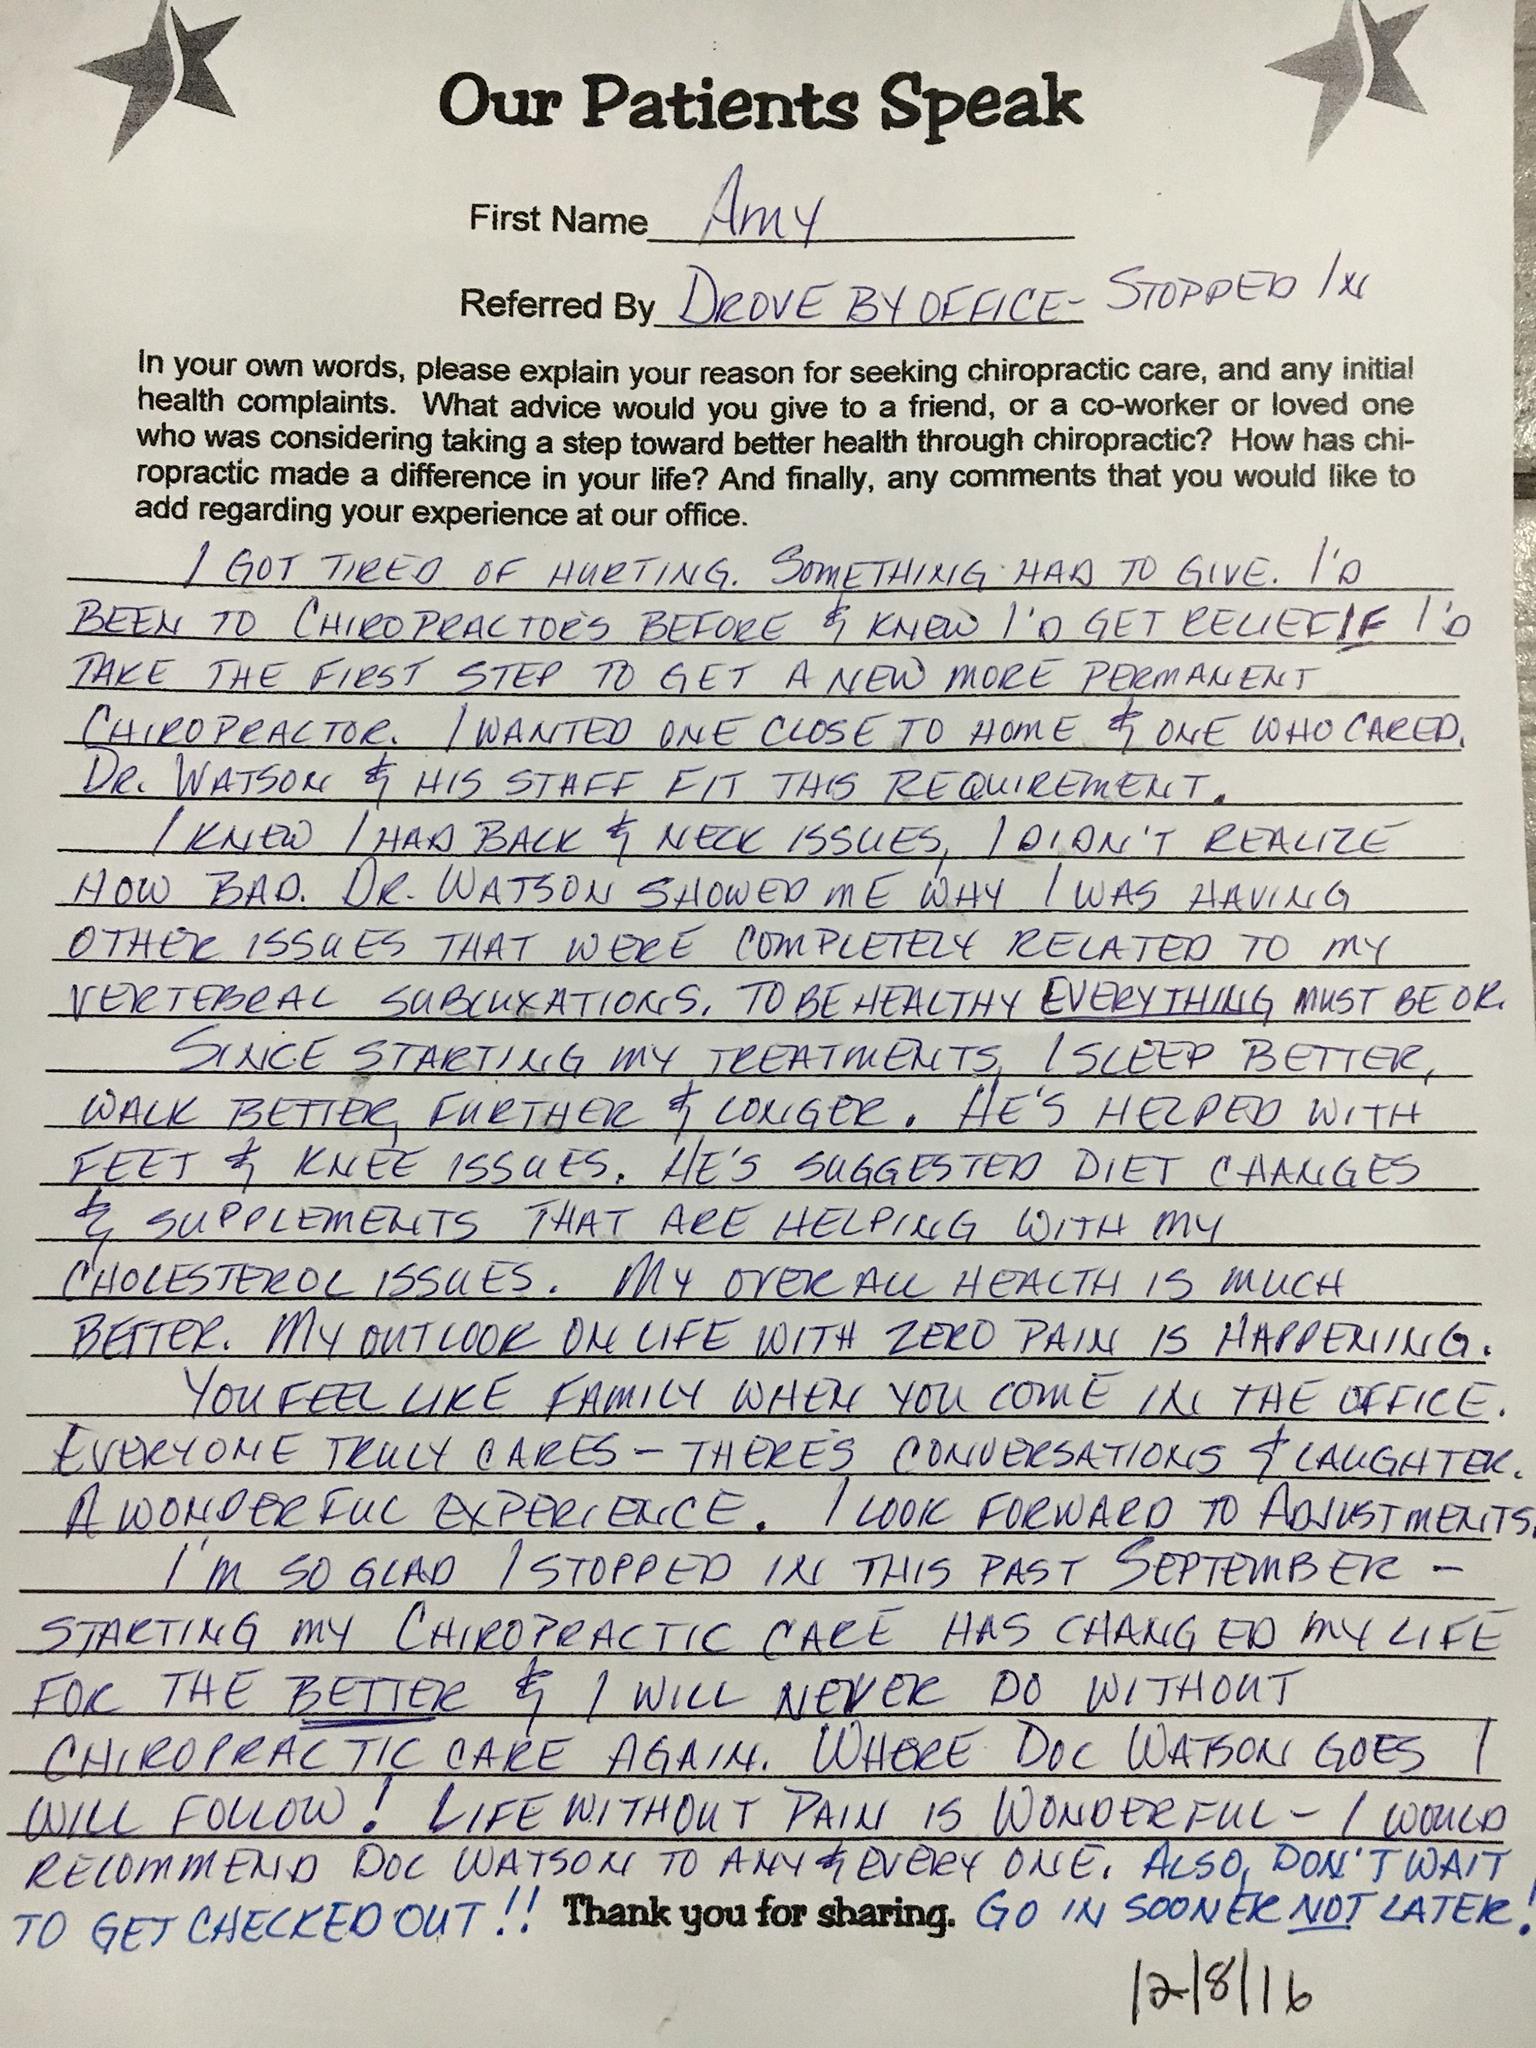 Our Patients Speak
First Name Amy
Referred By DROVE BY OFFICE - STOPPED IN
In your own words, please explain your reason for seeking chiropractic care, and any initial
health complaints. What advice would you give to a friend, or a co-worker or loved one
who was considering taking a step toward better health through chiropractic? How has chi-
ropractic made a difference in your life? And finally, any comments that you would like to
add regarding your experience at our office.
I GOT TIRED OF HURTING. SOMETHING HAD TO GIVE. I'D
BEEN TO CHIROPRACTORS BEFORE & KNEW I'D GET RELIEF IF I'D
TAKE THE FIRST STEP TO GET A NEW MORE PERMANENT
CHIROPRACTOR. I WANTED ONE CLOSE TO HOME & ONE WHO CARED.
DR. WATSON & HIS STAFF FIT THIS REQUIREMENT.
I KNEW I HAD BACK & NECK ISSUES, I DIDN'T REALIZE
HOW BAD. DR. WATSON SHOWED ME WHY I WAS HAVING
OTHER ISSUES THAT WERE COMPLETELY RELATED TO MY
VERTEBRAL SUBLUXATIONS. TO BE HEALTHY EVERYTHING MUST BE OK.
SINCE STARTING MY TREATMENTS, I SLEEP BETTER,
WALK BETTER, FURTHER & LONGER. HE'S HELPED WITH
FEET & KNEE ISSUES. HE'S SUGGESTED DIET CHANGES
& SUPPLEMENTS THAT ARE HELPING WITH MY
CHOLESTEROL ISSUES. MY OVER ALL HEALTH IS MUCH
BETTER. MY OUTLOOK ON LIFE WITH ZERO PAIN IS HAPPENING.
YOU FEEL LIKE FAMILY WHEN YOU COME IN THE OFFICE.
EVERYONE TRULY CARES - THERE'S CONVERSATIONS & LAUGHTER.
A WONDERFUL EXPERIENCE. I LOOK FORWARD TO ADJUSTMENTS.
I'M SO GLAD I STOPPED IN THIS PAST SEPTEMBER -
STARTING MY CHIROPRACTIC CARE HAS CHANGED MY LIFE
FOR THE BETTER & I WILL NEVER DO WITHOUT
CHIROPRACTIC CARE AGAIN. WHERE DOC WATSON GOES I
WILL FOLLOW! LIFE WITHOUT PAIN IS WONDERFUL - I WOULD
RECOMMEND DOC WATSON TO ANY & EVERY ONE. ALSO, DON'T WAIT
TO GET CHECKED OUT!! Thank you for sharing. GO IN SOONER NOT LATER!
12/8/16